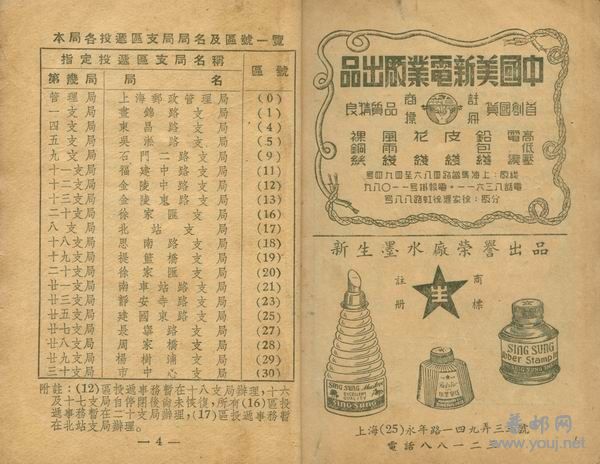 本局各投遞區支局局名及區號一覽
指定投遞區支局名稱 區號
第幾局 局名
管理局 上海郵政管理局 (0)
一支局 畫錦路支局 (1)
四支局 東昌路支局 (4)
五支局 吳淞路支局 (5)
九支局 石門二路支局 (9)
十一支局 福建中路支局 (11)
十二支局 金陵中路支局 (12)
十三支局 金陵東路支局 (13)
二十支局 徐家匯支局 (16)
八支局 北站支局 (17)
十八支局 思南路支局 (18)
十九支局 提籃橋支局 (19)
二十支局 徐家匯支局 (20)
廿一支局 南車站路支局 (21)
廿三支局 靜安寺路支局 (23)
廿五支局 建國東路支局 (25)
廿七支局 長壽路支局 (27)
廿八支局 周家橋支局 (28)
廿九支局 楊樹浦支局 (29)
三十支局 市中心支局 (30)
附註:(12)區投遞事務暫在十八支局辦理,十六
及十七支局自停閉後尚未恢復,所有(16)區投
遞事務暫在二十支局辦理,(17)區投遞事務暫
在北站支局辦理。
— 4 —
中國美新電業廠出品
首創國貨 註冊商標 品質精良
高低壓電
鉛包綫
皮綫
花綫
風雨綫
裸銅綫
新生墨水廠榮譽出品
註冊 商標
生
SING SUNG
SING SUNG
Rubber Stamp Ink
上海(25)永年路一四九弄三三號
電話八八一二三
善邮网
www.youj.net